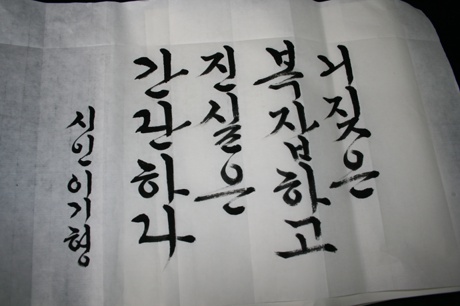 거짓은
복잡하고
진실은
간단하다
시인 이기형